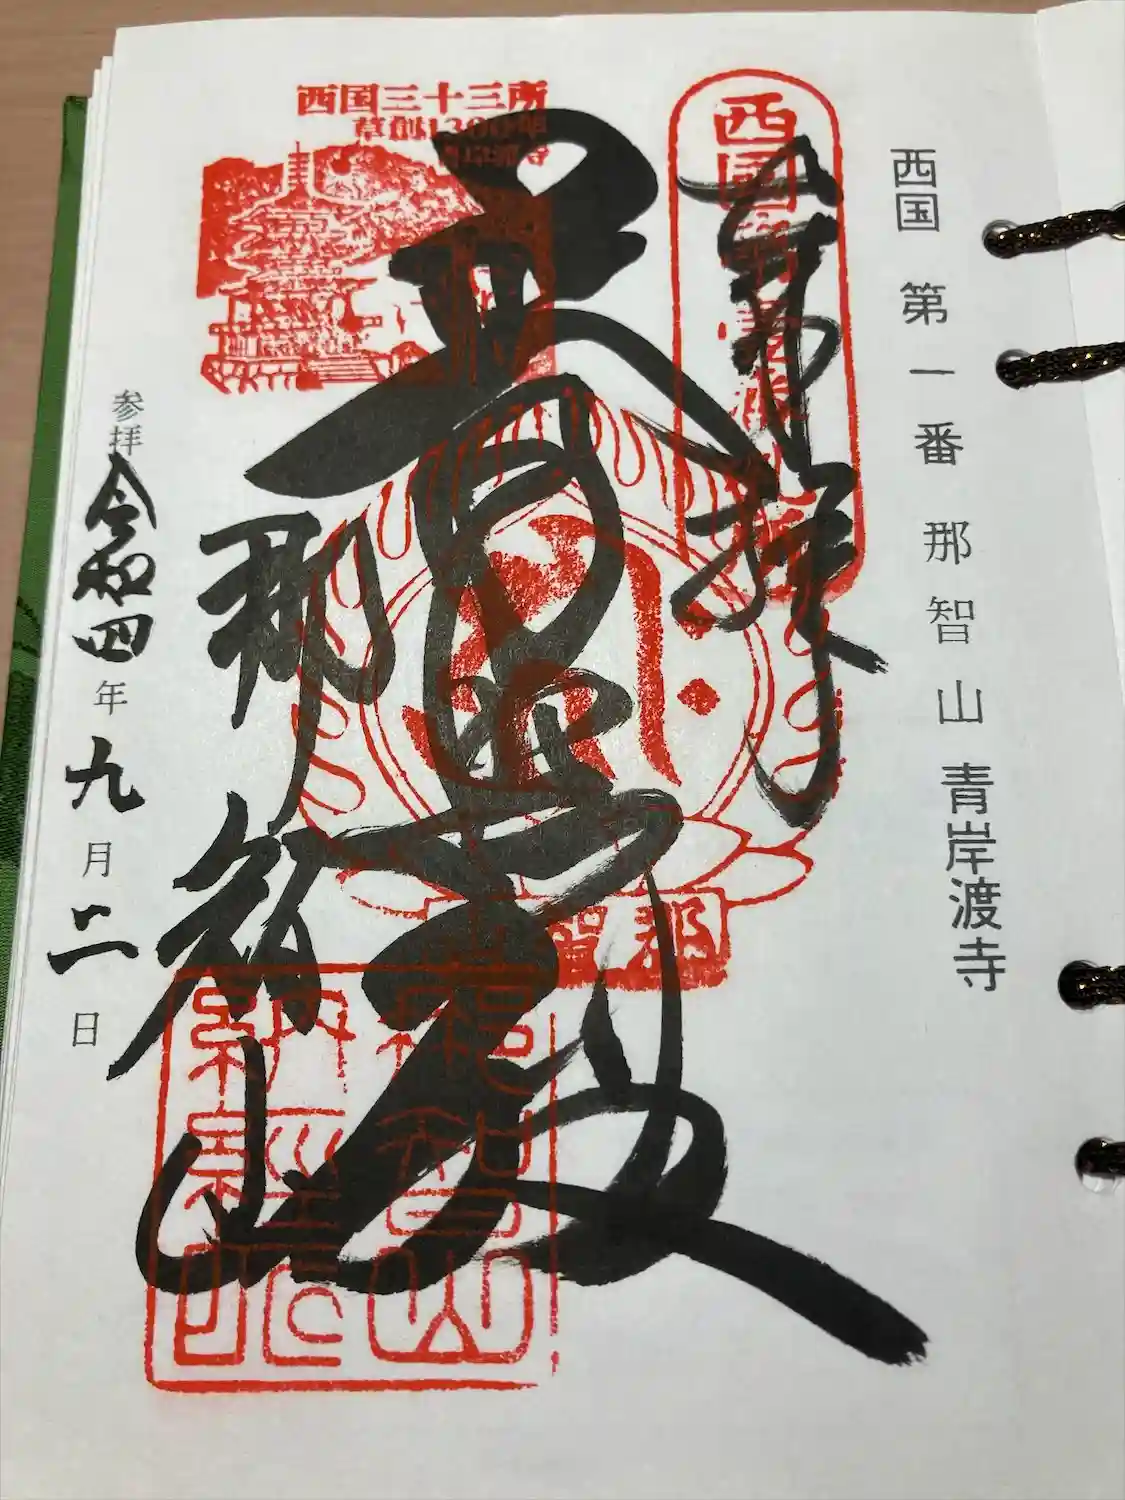 西国 第一番 那智山 青岸渡寺
奉拝
西國
西国三十三所
草創1300年
普照殿
那智
那智山
那智山
納経印
参拝 令和四年九月二日